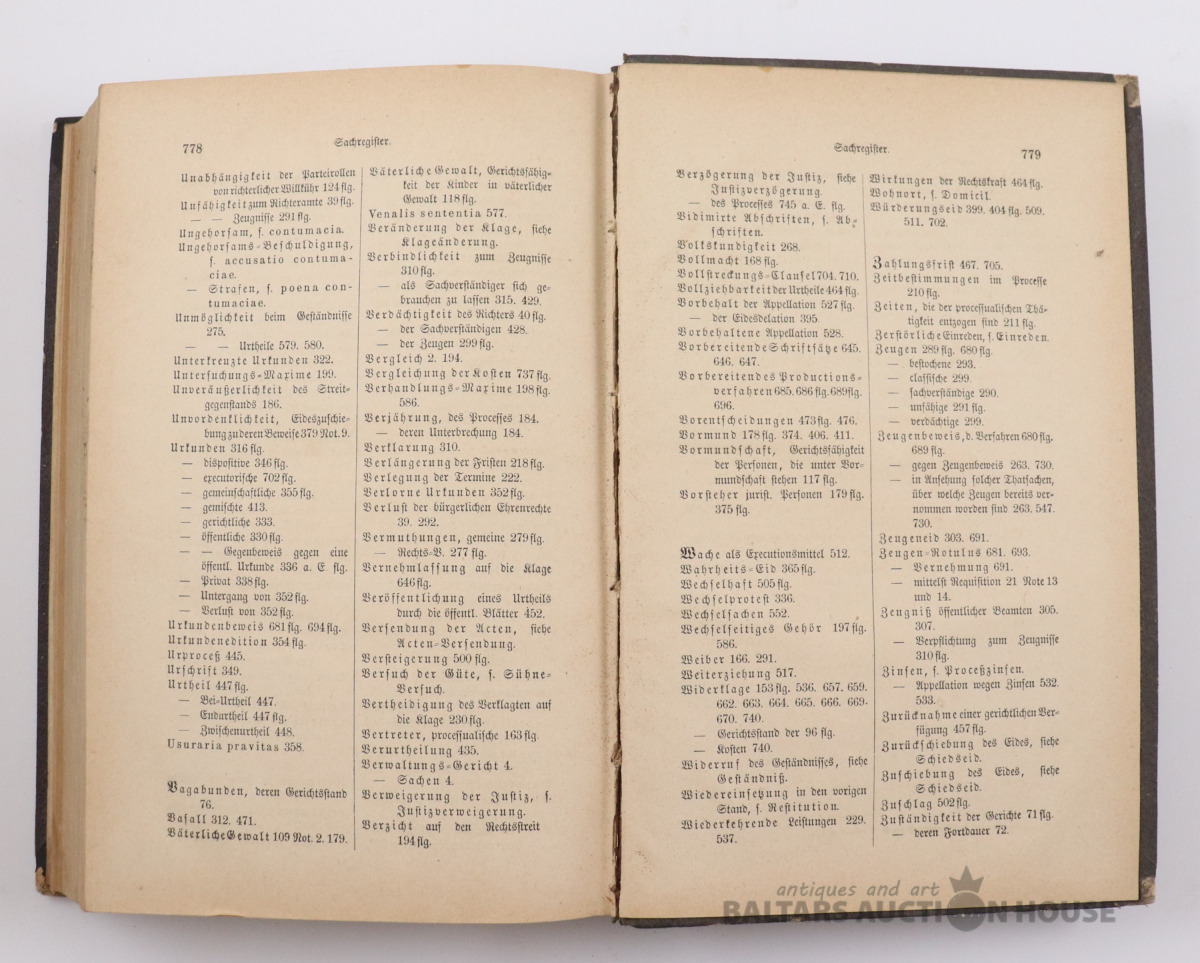 778
Sachregister.
Unabhängigkeit der Parteirollen
von richterlicher Willkühr 124 flg.
Unfähigkeit zum Richteramte 39 flg.
— — Zeugnisse 291 flg.
Ungehorsam, s. contumacia.
Ungehorsams-Beschuldigung,
s. accusatio contuma-
ciae.
— Strafen, s. poena con-
tumaciae.
Unmöglichkeit beim Geständnisse
275.
— — Urtheile 579. 580.
Unterkreuzte Urkunden 322.
Untersuchungs-Maxime 199.
Unveräußerlichkeit des Streit-
gegenstands 186.
Unvordenklichkeit, Eideszuschie-
bung zu deren Beweise 379 Not. 9.
Urkunden 316 flg.
— dispositive 346 flg.
— executorische 702 flg.
— gemeinschaftliche 355 flg.
— gemischte 413.
— gerichtliche 333.
— öffentliche 330 flg.
— — Gegenbeweis gegen eine
öffentl. Urkunde 336 a. E. flg.
— Privat 338 flg.
— Untergang von 352 flg.
— Verlust von 352 flg.
Urkundenbeweis 681 flg. 694 flg.
Urkundenedition 354 flg.
Urproceß 445.
Urschrift 349.
Urtheil 447 flg.
— Bei-Urtheil 447.
— Endurtheil 447 flg.
— Zwischenurtheil 448.
Usuraria pravitas 358.
Vagabunden, deren Gerichtsstand
76.
Vasall 312. 471.
Väterliche Gewalt 109 Not. 2. 179.
Väterliche Gewalt, Gerichtsfähig-
keit der Kinder in väterlicher
Gewalt 118 flg.
Venalis sententia 577.
Veränderung der Klage, siehe
Klageänderung.
Verbindlichkeit zum Zeugnisse
310 flg.
— als Sachverständiger sich ge-
brauchen zu lassen 315. 429.
Verdächtigkeit des Richters 40 flg.
— der Sachverständigen 428.
— der Zeugen 299 flg.
Vergleich 2. 194.
Vergleichung der Kosten 737 flg.
Verhandlungs-Maxime 198 flg.
586.
Verjährung, des Processes 184.
— deren Unterbrechung 184.
Verklarung 310.
Verlängerung der Fristen 218 flg.
Verlegung der Termine 222.
Verlorne Urkunden 352 flg.
Verlust der bürgerlichen Ehrenrechte
39. 292.
Vermuthungen, gemeine 279 flg.
— Rechts-V. 277 flg.
Vernehmlassung auf die Klage
646 flg.
Veröffentlichung eines Urtheils
durch die öffentl. Blätter 452.
Versendung der Acten, siehe
Acten-Versendung.
Versteigerung 500 flg.
Versuch der Güte, s. Sühne-
Versuch.
Vertheidigung des Verklagten auf
die Klage 230 flg.
Vertreter, processualische 163 flg.
Verurtheilung 435.
Verwaltungs-Gericht 4.
— Sachen 4.
Verweigerung der Justiz, s.
Justizverweigerung.
Verzicht auf den Rechtsstreit
194 flg.
Sachregister.
779
Verzögerung der Justiz, siehe
Justizverzögerung.
— des Processes 745 a. E. flg.
Vidimirte Abschriften, s. Ab-
schriften.
Volkskundigkeit 268.
Vollmacht 168 flg.
Vollstreckungs-Clausel 704. 710.
Vollziehbarkeit der Urtheile 464 flg.
Vorbehalt der Appellation 527 flg.
— der Eidesdelation 395.
Vorbehaltene Appellation 528.
Vorbereitende Schriftsätze 645.
646. 647.
Vorbereitendes Productions-
verfahren 685. 686 flg. 689 flg.
696.
Vorentscheidungen 473 flg. 476.
Vormund 178 flg. 374. 406. 411.
Vormundschaft, Gerichtsfähigkeit
der Personen, die unter Vor-
mundschaft stehen 117 flg.
Vorsteher jurist. Personen 179 flg.
375 flg.
Wache als Executionsmittel 512.
Wahrheits-Eid 365 flg.
Wechselhaft 505 flg.
Wechselprotest 336.
Wechselsachen 552.
Wechselseitiges Gehör 197 flg.
586.
Weiber 166. 291.
Weiterziehung 517.
Widerklage 153 flg. 536. 657. 659.
662. 663. 664. 665. 666. 669-
670. 740.
— Gerichtsstand der 96 flg.
— Kosten 740.
Widerruf des Geständnisses, siehe
Geständniß.
Wiedereinsetzung in den vorigen
Stand, s. Restitution.
Wiederkehrende Leistungen 229.
537.
Wirkungen der Rechtskraft 464 flg.
Wohnort, s. Domicil.
Würderungseid 399. 404 flg. 509.
511. 702.
Zahlungsfrist 467. 705.
Zeitbestimmungen im Processe
210 flg.
Zeiten, die der processualischen Thä-
tigkeit entzogen sind 211 flg.
Zerstörliche Einreden, s. Einreden.
Zeugen 289 flg. 680 flg.
— bestochene 293.
— classische 299.
— sachverständige 290.
— unfähige 291 flg.
— verdächtige 299.
Zeugenbeweis, d. Verfahren 680 flg.
689 flg.
— gegen Zeugenbeweis 263. 730.
— in Ansehung solcher Thatsachen,
über welche Zeugen bereits ver-
nommen worden sind 263. 547.
730.
Zeugeneid 303. 691.
Zeugen-Rotulus 681. 693.
— Vernehmung 691.
— mittelst Requisition 21 Note 13
und 14.
Zeugniß öffentlicher Beamten 305.
307.
— Verpflichtung zum Zeugnisse
310 flg.
Zinsen, s. Proceßzinsen.
— Appellation wegen Zinsen 532.
533.
Zurücknahme einer gerichtlichen Ver-
fügung 457 flg.
Zurückschiebung des Eides, siehe
Schiedseid.
Zuschiebung des Eides, siehe
Schiedseid.
Zuschlag 502 flg.
Zuständigkeit der Gerichte 71 flg.
— deren Fortdauer 72.
antiques and art
BALTARS AUCTION HOUSE